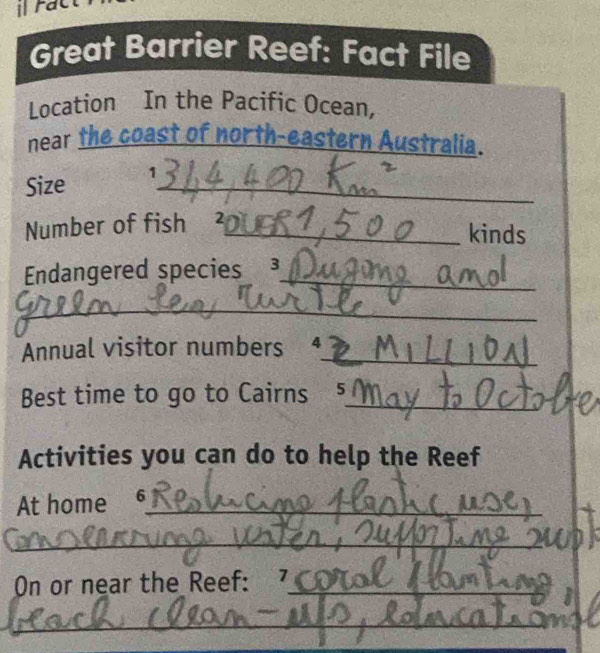 Great Barrier Reef: Fact File
Location In the Pacific Ocean,
near the coast of north-eastern Australia.
Size 1 344,400 Km²
Number of fish 2 OVER 1,500 kinds
Endangered species 3 Dugong and
green sea turtle
Annual visitor numbers 4 2 MILLION
Best time to go to Cairns 5 May to October
Activities you can do to help the Reef
At home 6 Reducing plastic use,
conserving water, supporting
On or near the Reef: 7 coral planting,
beach clean-ups, educational